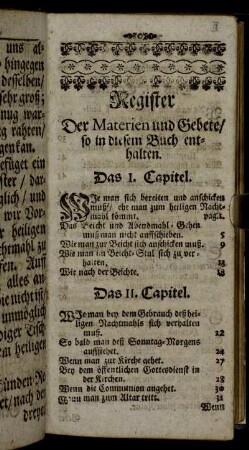 uns al-
hingegen
desselben/
sehr groß;
nug war-
rahten/
gen kan.
füget ein
ster / dar-
glich / und
wir Vor-
heiligen
chtmahl zu
Auff
alles an-
nicht ist
unmöglich
diger Tisch
heiligen
ünden-Re-
/ nach de-
dreyen
Register
Der Materien und Gebete/
so in diesem Buch ent-
halten.
Das I. Capitel.
Wie man sich bereiten und anschicken
muß/ ehe man zum heiligen Nacht-
mahl kömmt. pag. 1.
Das Beicht und Abendmahl-Gehen
muß man nicht auffschieben. 5
Wie man zur Beicht sich anschicken muß. 9
Wie man im Beicht-Stul sich zu ver-
halten. 15
Wie nach der Beichte. 18
Das II. Capitel.
Wie man bey dem Gebrauch deß hei-
ligen Nachtmahls sich verhalten
muß. 22
So bald man deß Sonntag-Morgens
auffstehet. 24
Wenn man zur Kirche gehet. 27
Bey dem öffentlichen Gottesdienst in
der Kirchen. 28
Wenn die Communion angehet. 30
Wenn man zum Altar tritt. 31
Wenn